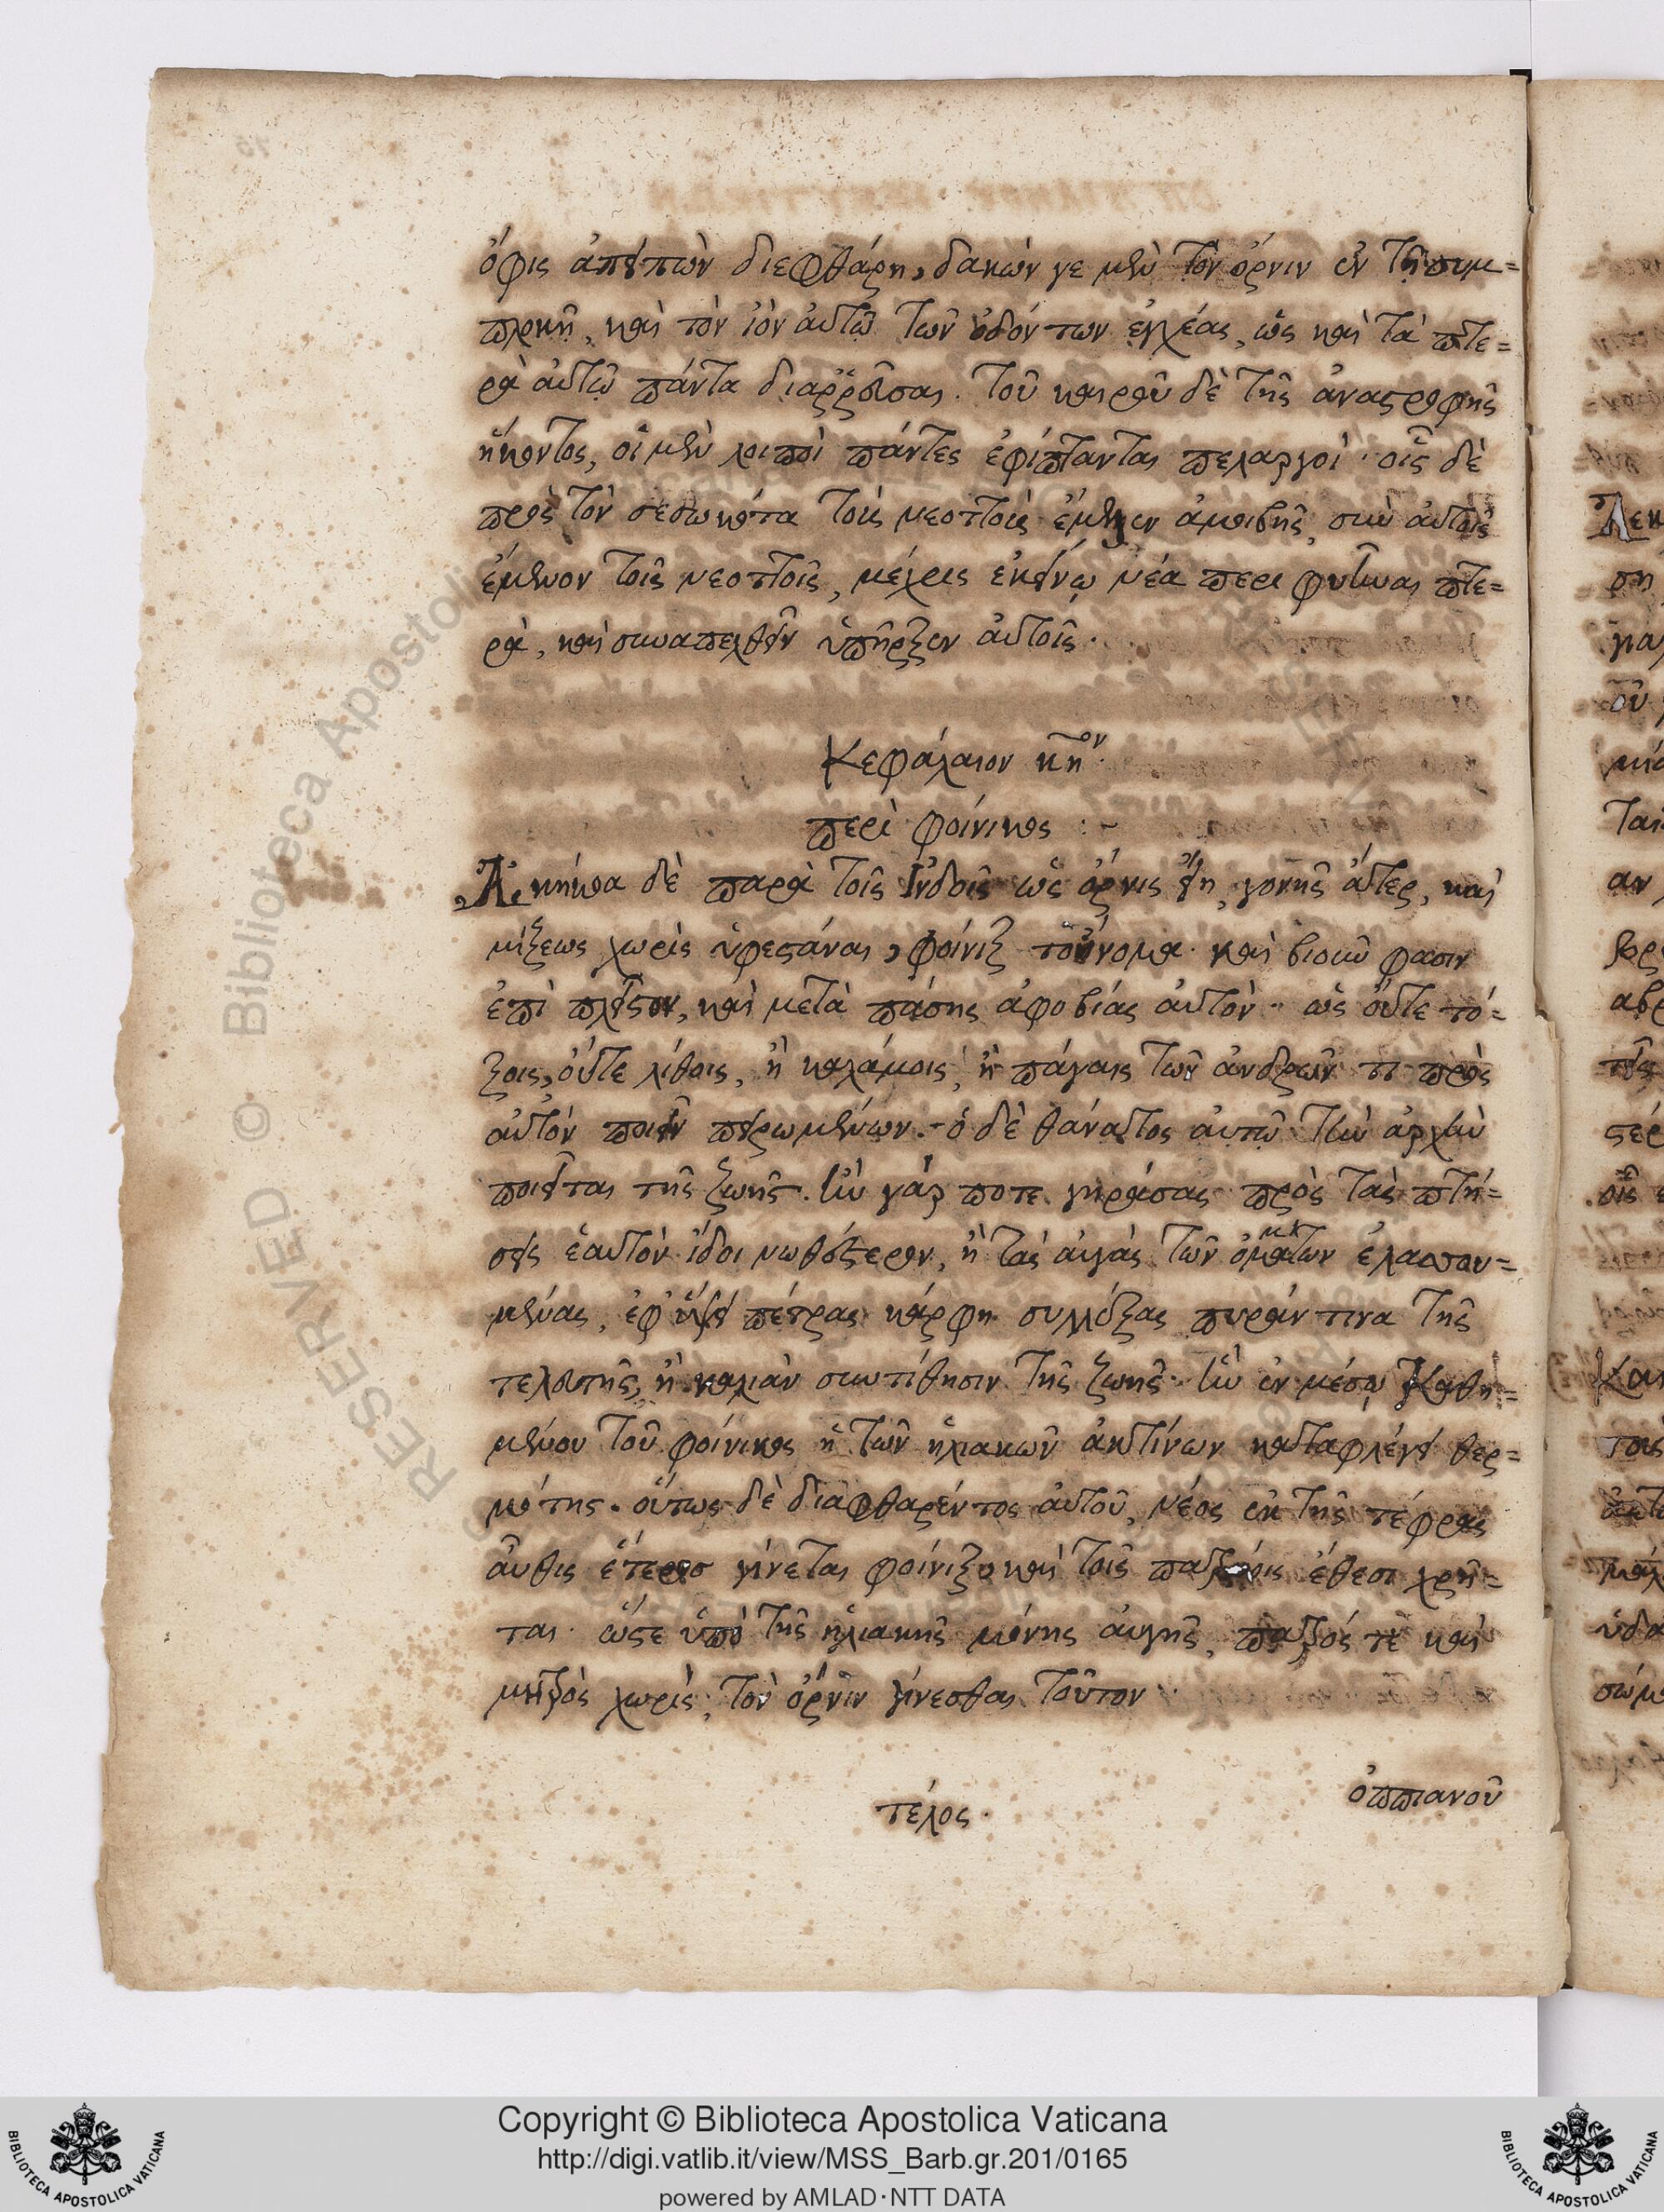 ὄφις ἀπειπὼν διεφθάρη, δακών γε μὲν τὸν ὄρνιν ἐν τῇ συμ=
πλοκῇ, καὶ τὸν ἰὸν αὐτῷ τῶν ὀδόντων ἐγχέας, ὡς καὶ τὰ πτε=
ρὰ αὐτῷ πάντα διαῤῥεῦσαι. τοῦ καιροῦ δὲ τῆς ἀναστροφῆς
ἥκοντος, οἱ μὲν λοιποὶ πάντες ἐφίπτανται πελαργοί· οἷς δὲ
πρὸς τὸν σεσωκότα τοὺς νεοττοὺς ἔμελεν ἀμοιβῆς, σὺν αὐτοῖς
ἔμενον τοῖς νεοττοῖς, μέχρις ἐκείνῳ νέα περιφυῆναι πτε=
ρὰ, καὶ συναπελθεῖν ὑπῆρξεν αὐτοῖς.
Κεφάλαιον κη^ον.
περὶ φοίνικος :~
Ἀκήκοα δὲ παρὰ τοῖς Ἰνδοῖς ὡς ὄρνις εἴη, γονῆς ἄτερ, καὶ
μίξεως χωρὶς ὑφεστάναι, φοίνιξ τοὔνομα· καὶ βιοῦν φασιν
ἐπὶ πλεῖστον, καὶ μετὰ πάσης ἀφοβίας αὐτόν· ὡς οὔτε τό=
ξοις, οὔτε λίθοις, ἢ καλάμοις, ἢ πάγαις τῶν ἀνδρῶν τι πρὸς
αὐτὸν ποιεῖν πειρωμένων. ὁ δὲ θάνατος αὐτῷ τὴν ἀρχὴν
ποιεῖται τῆς ζωῆς. ἢν γάρ ποτε γηράσας πρὸς τὰς πτή=
σεις ἑαυτὸν ἴδοι νωθέστερον, ἢ τὰς αὐγὰς τῶν ὀμμάτων ἐλαττου=
μένας, ἐφ' ὑψηλῆς πέτρας κάρφη συλλέξας πυράν τινα τῆς
τελευτῆς, ἢ καλιὰν συντίθησιν τῆς ζωῆς. ἣν ἐν μέσῳ καθη=
μένου τοῦ φοίνικος ἡ τῶν ἡλιακῶν ἀκτίνων καταφλέγει θερ=
μότης. οὕτως δὲ διαφθαρέντος αὐτοῦ, νέος ἐκ τῆς τέφρας
αὖθις ἕτερος γίνεται φοίνιξ, καὶ τοῖς πατρῴοις ἔθεσι χρῆ=
ται· ὥστε ὑπὸ τῆς ἡλιακῆς μόνης αὐγῆς, πατρός τε καὶ
μητρὸς χωρίς, τὸν ὄρνιν γίνεσθαι τοῦτον
τέλος.
ὀππιανοῦ
RESERVED © Biblioteca Apostolica
Copyright © Biblioteca Apostolica Vaticana
http://digi.vatlib.it/view/MSS_Barb.gr.201/0165
powered by AMLAD·NTT DATA
BIBLIOTECA APOSTOLICA VATICANA
BIBLIOTECA APOSTOLICA VATICANA